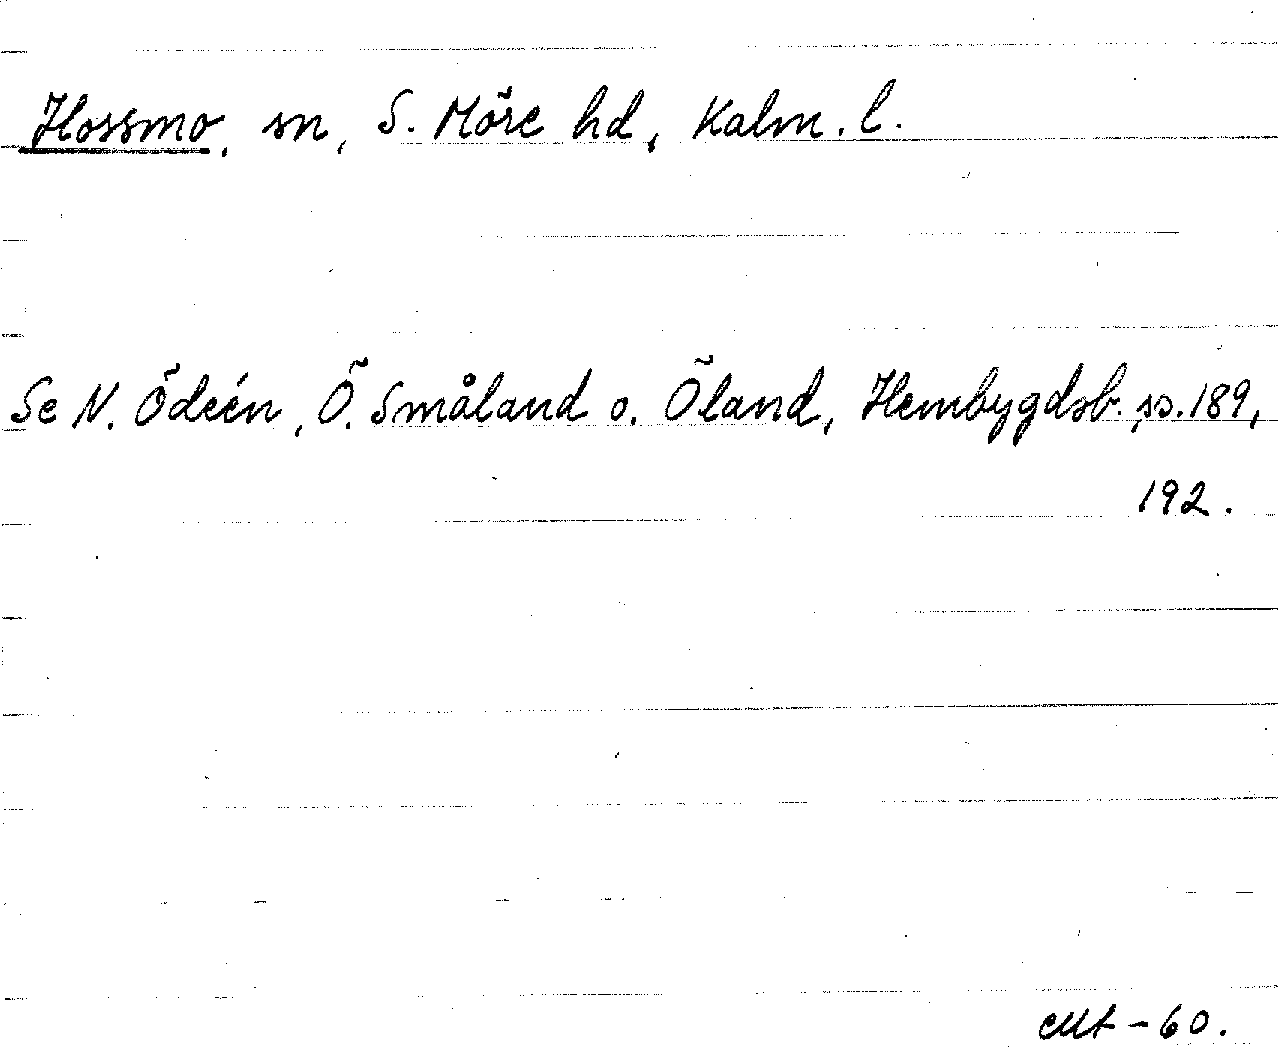 Hossmo, sn, S. Möre hd, Kalm. l.
Se N. Ödeén, Ö. Småland o. Öland, Hembygdsb. ,s. 189,
192.
-60.